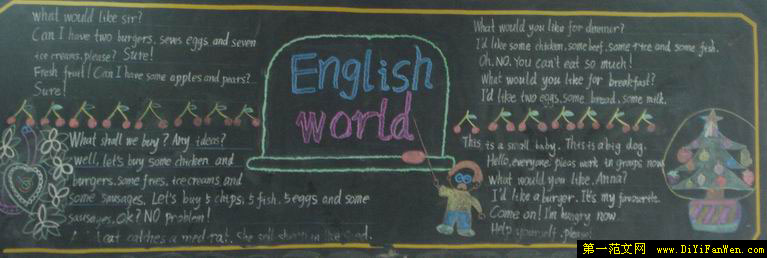 what would like sir?
Can I have two burgers. seves eggs and seven
ice creams, please? Sure!
Fresh fruit! Can I have some apples and pears?
Sure!
What shall we buy? Any ideas?
well, let's buy some chicken and
burgers. some fries, ice creams and
some sausages. Let's buy 5 chips. 5 fish. 5 eggs and some
sausages. Ok? NO problem!
cat catches a
English
world
What would you like for dinnner?
I'd like some chicken, some beef, some rice and some fish.
Oh. NO. You can't eat so much!
What would you like for breakfast?
I'd like two eggs, some bread, some milk.
This is a small baby. This is a big dog.
Hello, everyone. pleas work in groups now
what would you like, Anna?
I'd like a burger. It's my favourite.
Come on! I'm hungry now.
Help yourself, please!
第一范文网 www.DiYiFanWen.com